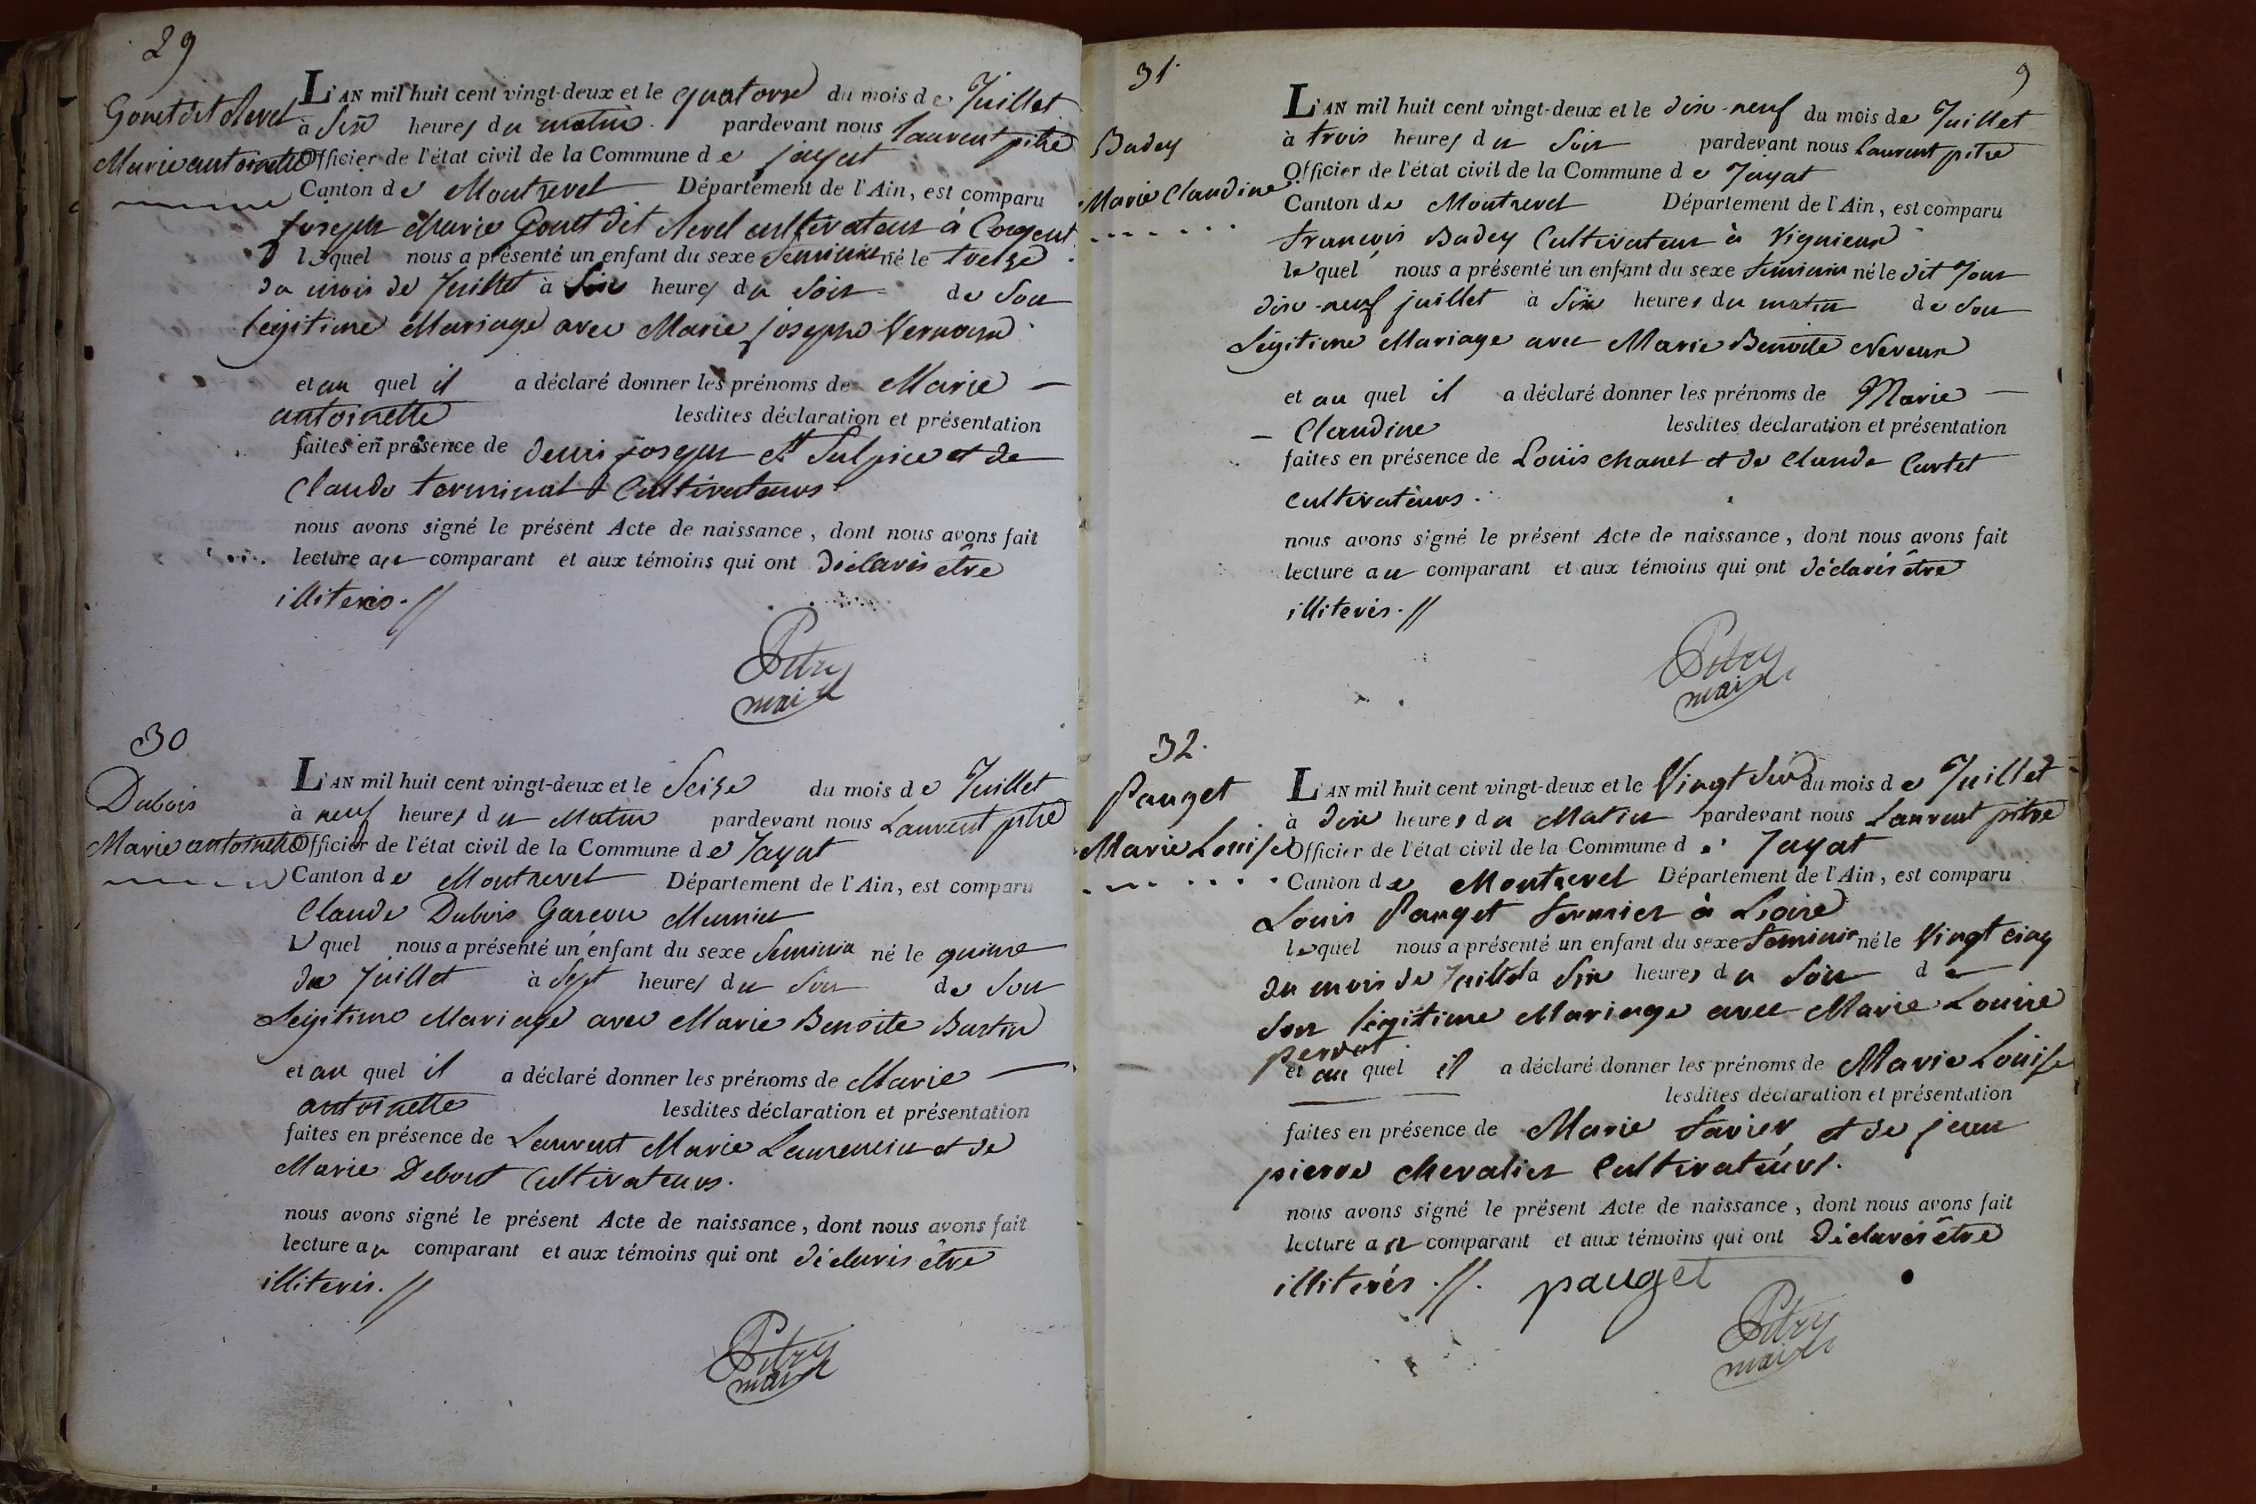 29
Gonet dit Nevel
Marie antoinette
L'AN mil huit cent vingt-deux et le quatorze du mois de Juillet
à Six heures du matin. pardevant nous laurent pitre
Officier de l'état civil de la Commune de jayat
Canton de Montrevel Département de l'Ain, est comparu
joseph Marie Gonet dit Nevel cultivateur à
lequel nous a présenté un enfant du sexe feminin né le treize
du mois de Juillet à Six heures du Soir de Son
légitime Mariage avec Marie josephe
et au quel il a déclaré donner les prénoms de Marie
antoinette lesdites déclaration et présentation
faites en présence de denis joseph St Sulpice et de
Claude terminal Cultivateurs
nous avons signé le présent Acte de naissance, dont nous avons fait
lecture au comparant et aux témoins qui ont déclarés être
illiterés. //
Pitre
maire
30
Dubois
Marie antoinette
L'AN mil huit cent vingt-deux et le Seize du mois de Juillet
à neuf heures du Matin pardevant nous Laurent pitre
Officier de l'état civil de la Commune de Jayat
Canton de Montrevel Département de l'Ain, est comparu
Claude Dubois Garcon Meunier
lequel nous a présenté un enfant du sexe feminin né le quinze
du Juillet à Sept heures du Soir de Son
Légitime Mariage avec Marie Benoite
et au quel il a déclaré donner les prénoms de Marie
antoinette lesdites déclaration et présentation
faites en présence de Laurent Marie Laurencin et de
Marie Debout Cultivateurs.
nous avons signé le présent Acte de naissance, dont nous avons fait
lecture au comparant et aux témoins qui ont déclarés être
illiterés. //
Pitre
maire
9
31.
Badey
Marie Claudine
L'AN mil huit cent vingt-deux et le dix-neuf du mois de Juillet
à trois heures du Soir pardevant nous Laurent pitre
Officier de l'état civil de la Commune de Jayat
Canton de Montrevel Département de l'Ain, est comparu
françois Badey Cultivateur à Vignieux
lequel nous a présenté un enfant du sexe feminin né le dit Jour
dix-neuf juillet à Six heures du matin de Son
Légitime Mariage avec Marie Benoite Neveux
et au quel il a déclaré donner les prénoms de Marie
Claudine lesdites déclaration et présentation
faites en présence de Louis Chanel et de Claude Cartet
Cultivateurs.
nous avons signé le présent Acte de naissance, dont nous avons fait
lecture au comparant et aux témoins qui ont déclarés être
illiterés. //
Pitre
maire
32.
Pauget
Marie Louise
L'AN mil huit cent vingt-deux et le Vingt Six du mois de Juillet
à dix heures du Matin pardevant nous Laurent pitre
Officier de l'état civil de la Commune de Jayat
Canton de Montrevel Département de l'Ain, est comparu
Louis Pauget fermier à
lequel nous a présenté un enfant du sexe feminin né le Vingt cinq
du mois de Juillet à Six heures du Soir de
Son légitime Mariage avec Marie Louise
perret
et au quel il a déclaré donner les prénoms de Marie Louise
lesdites déclaration et présentation
faites en présence de Marie favier et de jean
pierre Chevalier Cultivateurs.
nous avons signé le présent Acte de naissance, dont nous avons fait
lecture au comparant et aux témoins qui ont déclarés être
illiterés. //. pauget
Pitre
maire